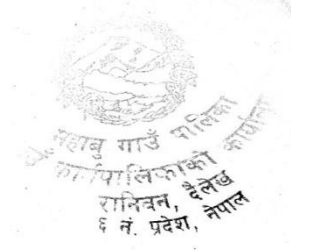 महाबु गाउँ पालिका
कार्यपालिकाको कार्यालय
रानिवन, दैलेख
६ नं. प्रदेश, नेपाल